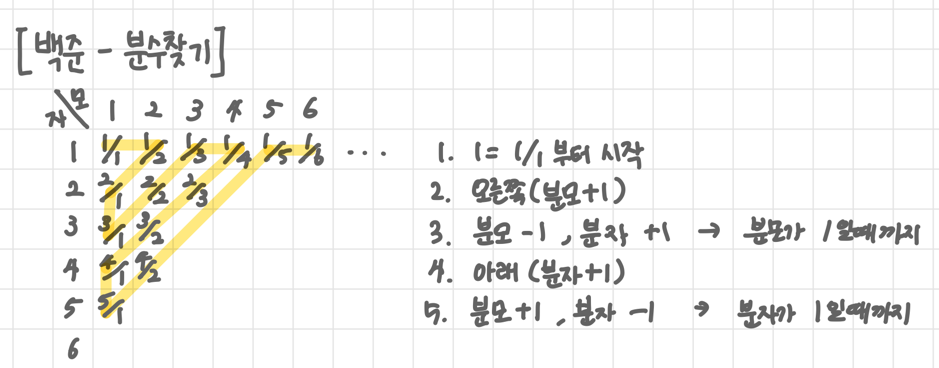 [백준 - 분수찾기]
자\모 1 2 3 4 5 6
1 1/1 1/2 1/3 1/4 1/5 1/6 ...
2 2/1 2/2 2/3
3 3/1 3/2
4 4/1 4/2
5 5/1
6
1. 1 = 1/1 부터 시작
2. 오른쪽 (분모+1)
3. 분모 -1 , 분자 +1 → 분모가 1일때까지
4. 아래 (분자+1)
5. 분모 +1 , 분자 -1 → 분자가 1일때까지